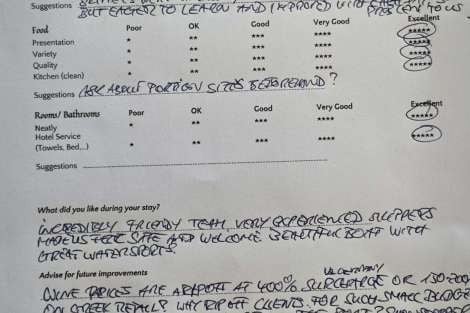 Suggestions
BUT EAGER TO LEARN AND IMPROVED WITH EACH
Food Poor OK Good Very Good Excellent
Presentation * ** *** **** *****
Variety * ** *** **** *****
Quality * ** *** **** *****
Kitchen (clean) * ** *** **** *****
Suggestions ASK ABOUT PORTION SIZES BEFOREHAND?
Rooms/ Bathrooms Poor OK Good Very Good Excellent
Neatly * ** *** **** *****
Hotel Service
(Towels, Bed...) * ** *** **** *****
Suggestions
What did you like during your stay?
INCREDIBLY FRIENDLY TEAM, VERY EXPERIENCED SKIPPERS
MADE US FEEL SAFE AND WELCOME BEAUTIFUL BOAT WITH
GREAT WATERSPORTS.
Advise for future improvements
VS GERMANY
WINE PRICES ARE A RIPOFF AT 400% SURCHARGE OR 150-200
ON GREEK RETAIL? WHY RIP OFF CLIENTS FOR SUCH SMALL